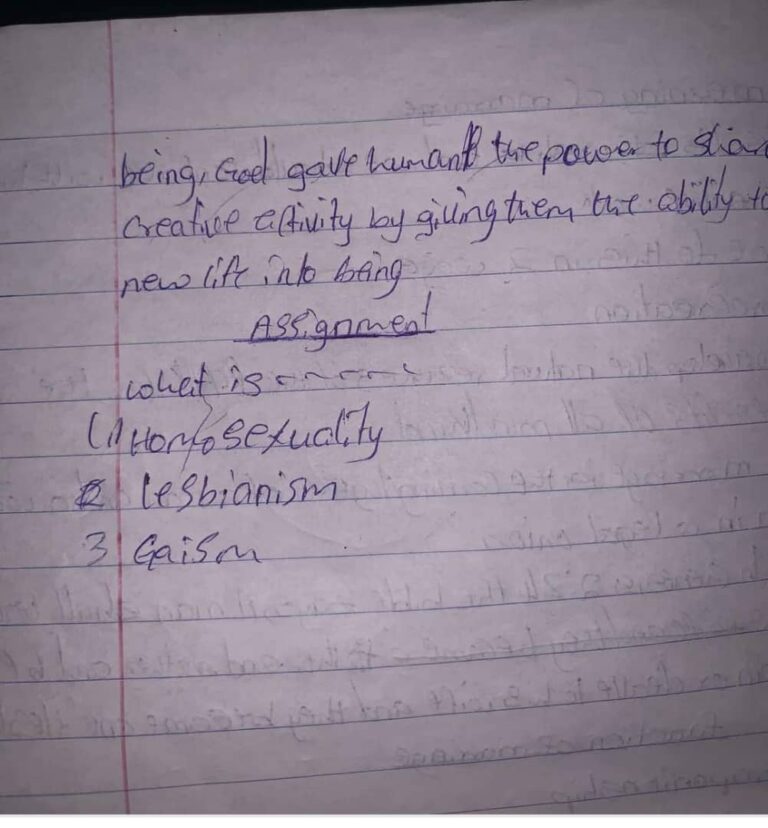 being, God gave human the power to shar
creative activity by giving them the ability to
new life into being
Assignment
what is - - - -
(1) Homosexuality
2 lesbianism
3 Gaism